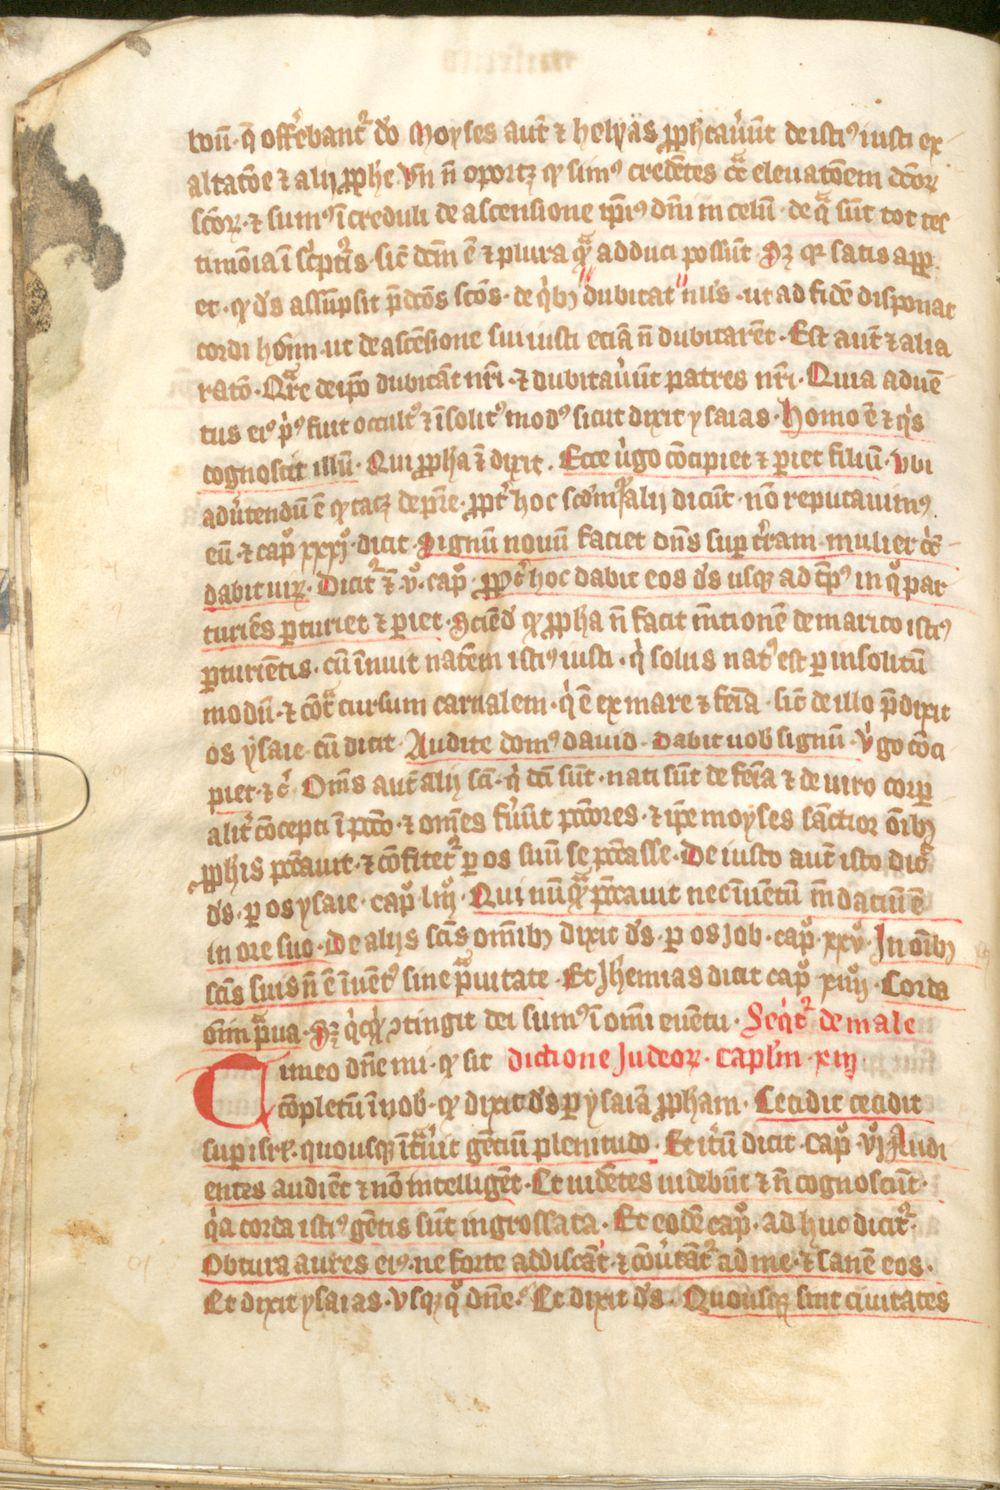 bonū · q̄ offerebant᷑ dō Moyses aūt ⁊ helyas ꝓphetauerūt de isti⁹ iusti ex-
altatōe ⁊ alij ꝓphe Vn̄ n̄ oportꝫ ꝙ sim⁹ credētes cͣ eleuatōem dcōꝝ
scōꝝ · ⁊ sum⁹ īcreduli de ascensione ip̄i⁹ dn̄i in celū · de qͣ sūt tot tes
timōia ī sc̄pt͛is · sic̄ dcm̄ ē ⁊ plura qͣ adduci possūt Sꝫ qꝛ satis app̄
et · ꝙ ds̄ assūpsit p̄dcōs scōs · de qͥbꝫ dubitat nllūs · ut ad fidē disponat
cordi hōīm ut de ascēsione sui iusti eciā n̄ dubitarēt · Est aūt ⁊ alia
ratō · Qͣre de ip̄o dubitāt nr̄i · ⁊ dubitauerūt patres nr̄i · Quia aduē
tus ei⁹ pͥ⁹ fuit occult⁹ ⁊ īsolit⁹ mod⁹ sicut dixit ysaias · Homo ē ⁊ qͥs
cognoscit illū · Qui ꝓpha ī dixit · Ecce ūgo cōcipiet ⁊ ꝑiet filiū · Vbi
aduertendū ē ꝙ tacꝫ de pr̄e · ꝓpt͛ hoc scd̄m alij dicūt · nō reputauim⁹
eū · ⁊ capͦ xxxjͦ · dicit · Signū nouū faciet dn̄s suꝑ t͛ram · mulier cͥcū-
dabit uiꝝ · Dicit᷑ ī · vͦ · capͦ · ꝓpt͛ hoc dabit eos ds̄ usqꝫ ad tp̄⁹ in qͦ par
turiēs ꝑturiet ⁊ ꝑiet · Sciēd ꝙ ꝓpha n̄ facit mētionē de marito isti⁹
ꝑturiētis · cū īnuit natēm isti⁹ iusti · qͥ solus nat⁹ est ꝑ insolitū
modū · ⁊ cōtͣ cursum carnalem · qͥ ē ex mare ⁊ feīa · sic̄ de illo p̄dixit
os ysaie · cū dicit · Audite dom⁹ dauid · Dabit uob signū · Vͥgo cōci
piet · ⁊ c̄ Om̄s aūt alij scī · qͥ dcī sūt · nati sūt de feīa ⁊ de uiro corꝑ
alit͛ cōcepti ī pctō · ⁊ om̄es fuerūt pctōres · ⁊ ip̄e moyses sāctior oībꝫ
ꝓphis pctāuit · ⁊ cōfitet᷑ ꝑ os suū se pctāsse · De iusto aūt isto dic̄
ds̄ · ꝑ os ysaie · capͦ · liijͦ · Qui nūqͣ pctāuit nec īuentū mēdaciū ē
in ore suo · De alijs scīs om̄ibꝫ dixit ds̄ · ꝑ os Job · capͦ · xxvͦ · In oībꝫ
scīs suis n̄ ē īuent⁹ sine pͣuitate · Et Jheremias dicit capͦ xiiijͦ · Corda
oīm pͣua · Sꝫ qͥcqͥd ꝯtingit dei sum⁹ ī om̄i euentu · Seqͥt᷑ de male
Timeo dn̄e mi · ꝙ sit dictione Judeoꝝ · Capl̄m · xiij
cōpletū ī nob · ꝙ dixit ds̄ ꝑ ysaiā ꝓpham · Cecidit cecidit
suꝑ isrl̄ · quousqꝫ īt͛uit gētiū plenitudo · Et itͥū dicit · capͦ · vjͦ Audi
entes audiēt ⁊ nō intelligēt · Et uidētes uidebūt ⁊ n̄ cognoscūt ·
qͥa corda isti⁹ gētis sūt ingrossata · Et eodē capͦ · ad huc dicit᷑ ·
Obtura aures ei⁹ · ne forte addiscāt · ⁊ cōuͥtāt᷑ ad me · ⁊ sanē eos ·
Et dixit ysaias · Vsqꝫ qͦ dn̄e · Et dixit ds̄ · Quousqꝫ sint ciuitates